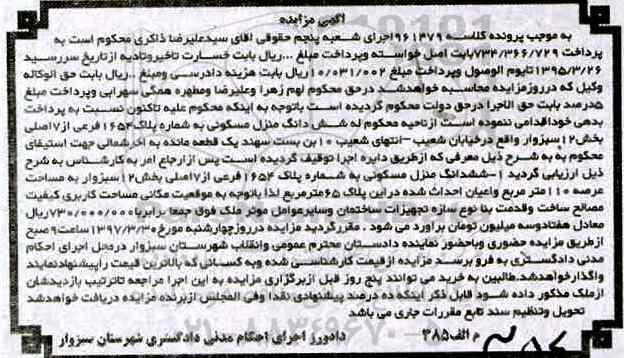 آگهی مزایده
به موجب پرونده کلاسه ۹۶۱۳۷۹اجرای شعبه پنجم حقوقی آقای سیدعلیرضا ذاکری محکوم است به
پرداخت ۷۳۴/۳۶۶/۷۲۹بابت اصل خواسته وپرداخت مبلغ ...ریال بابت خسارت تاخیروتادیه ازتاریخ سررسید
۱۳۹۵/۳/۲۶تایوم الوصول وپرداخت مبلغ ۱۰/۰۳۱/۰۰۲ریال بابت هزینه دادرسی ومبلغ ..ریال بابت حق الوکاله
وکیل که درروزمزایده محاسبه خواهدشد درحق محکوم لهم زهرا وعلیرضا ومطهره همگی سهرابی وپرداخت مبلغ
۵درصد بابت حق الاجرا درحق دولت محکوم گردیده است باتوجه به اینکه محکوم علیه تاکنون نسبت به پرداخت
بدهی خوداقدامی ننموده است ازناحیه محکوم له شش دانگ منزل مسکونی به شماره پلاک۱۶۵۴ فرعی از۷اصلی
بخش۱۲سبزوار واقع درخیابان شعیب -انتهای شعیب ۱۰بن بست سهند یک قطعه مانده به آخرشمالی جهت استیفای
محکوم به به شرح ذیل معرفی که ازطریق دایره اجرا توقیف گردیده است پس ازارجاع امر به کارشناس به شرح
ذیل ارزیابی گردید ۱-ششدانگ منزل مسکونی به شماره پلاک ۱۶۵۴ فرعی از۷اصلی بخش۱۲سبزوار به مساحت
عرصه ۱۱۰متر مربع واعیان احداث شده دراین پلاک ۶۵مترمربع لذا باتوجه به موقعیت مکانی مساحت کاربری کیفیت
مصالح ساخت وقدمت بنا نوع سازه تجهیزات ساختمان وسایرعوامل موثر ملک فوق جمعا برابربا۷۳۰/۰۰۰/۰۰۰ریال
معادل هفتادوسه میلیون تومان برآورد می شود . مقررگردید مزایده درروزچهارشنبه مورخ۱۳۹۷/۳/۳۰ساعت۹صبح
ازطریق مزایده حضوری وباحضور نماینده دادستان محترم عمومی وانقلاب شهرستان سبزوار درمحل اجرای احکام
مدنی دادگستری به فرو برسد مزایده ازقیمت کارشناسی شده وبه کسانی که بالاترین قیمت راپیشنهادنمایند
واگذارخواهدشد.طالبین به خرید می توانند پنج روز قبل ازبرگزاری مزایده به این اجرا مراجعه تاترتیب بازدیدشان
ازملک مذکور داده شود قابل ذکر اینکه ده درصد پیشنهادی نقدا وفی المجلس ازبرنده مزایده دریافت خواهدشد
تحویل وتنظیم سند تابع مقررات جاری می باشد
م الف۳۸۵ دادورز اجرای احکام مدنی دادگستری شهرستان سبزوار